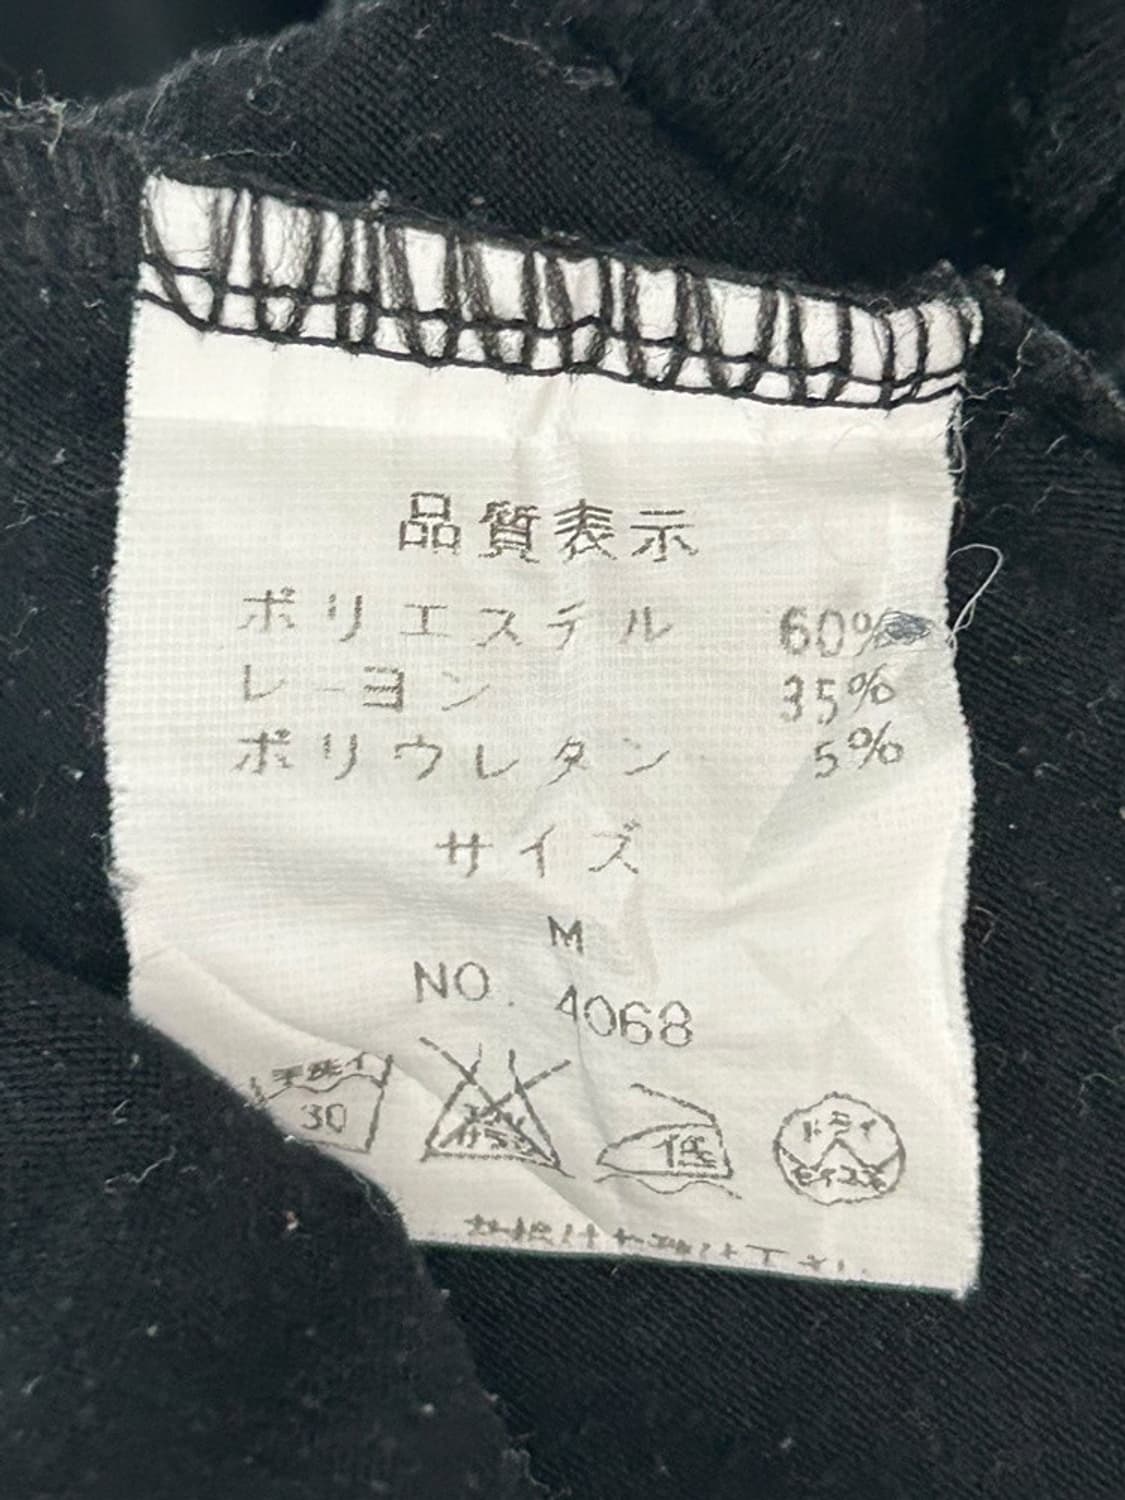 品質表示
ポリエステル 60%
レーヨン 35%
ポリウレタン 5%
サイズ
M
NO. 4068
手洗イ
30
エンソ
サラシ
低
ドライ
セキユ系